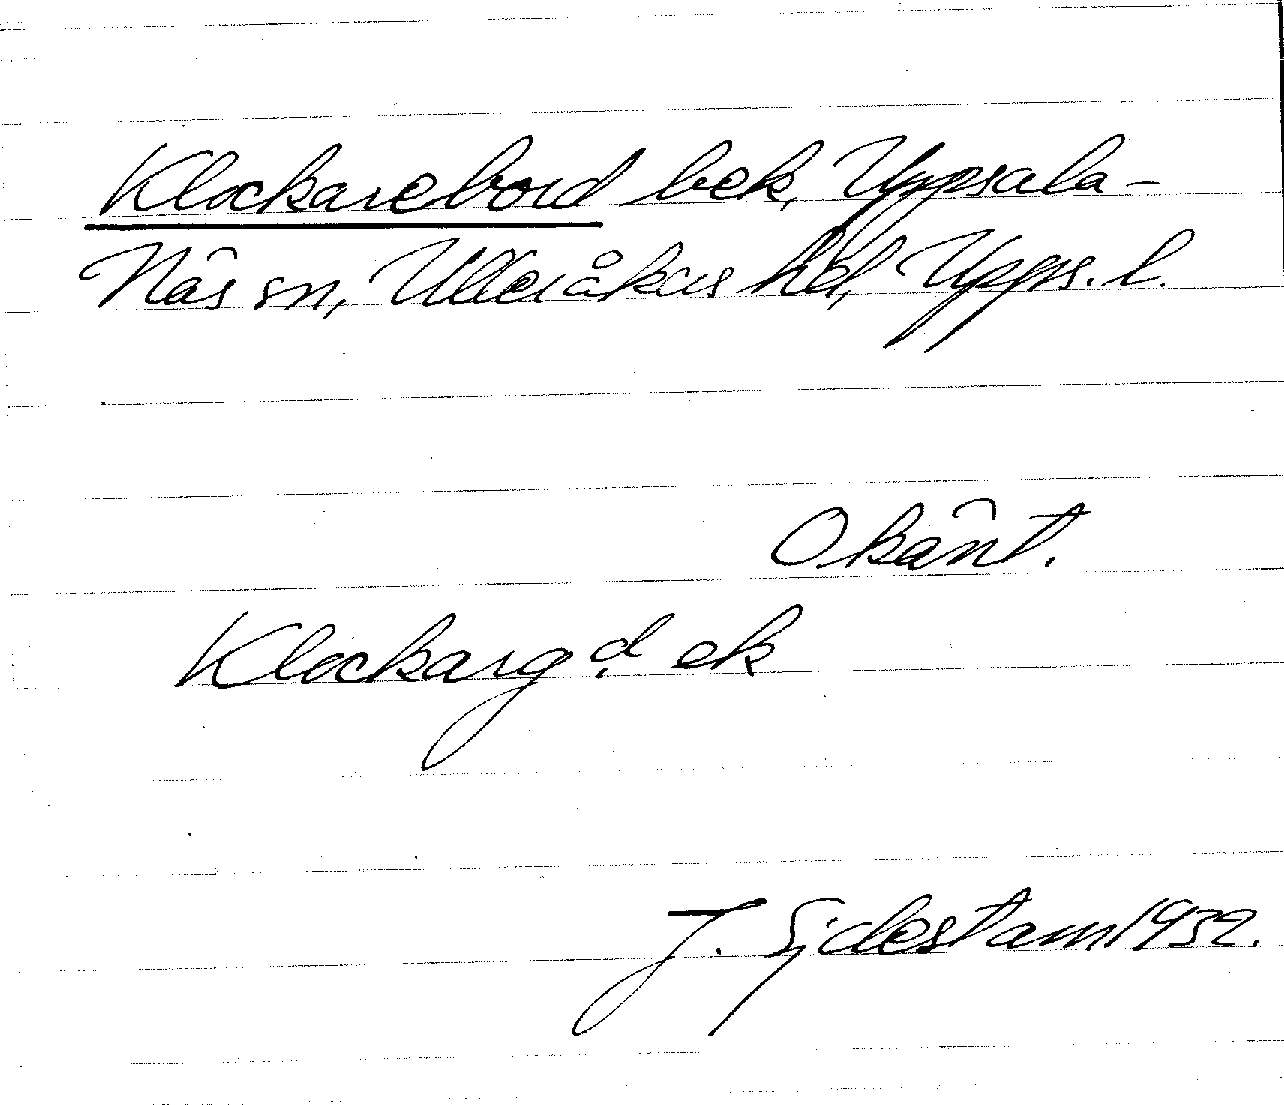 Klockarebord bek, Uppsala-
Näs sn, Ulleråkers hd, Upps. l.
Okänt.
Klockarg.d ek
J. Sjdestam 1932.